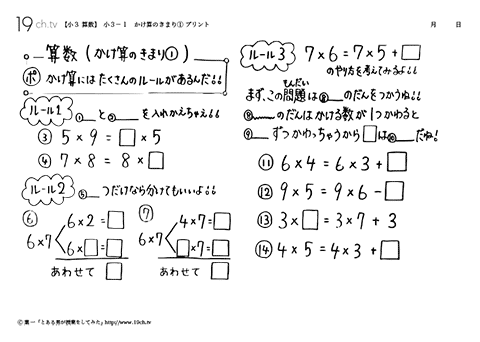 19ch.tv 【小3 算数】 小3-1 かけ算のきまり① プリント
月 日
算数(かけ算のきまり①)
ポ かけ算にはたくさんのルールがあるんだ!!
ルール1 ①__と②__を入れかえちゃえ!!
③ 5×9=□×5
④ 7×8=8×□
ルール2 ⑤__つだけなら分けてもいいよ!!
⑥ 6×7 6×2=□
6×□=□
あわせて □
⑦ 6×7 4×7=□
□×7=□
あわせて □
ルール3 7×6=7×5+□
のやり方を考えてみるよ!!
もんだい
まず、この問題は⑧__のだんをつかうね!!
⑧__のだんはかける数が1つかわると
⑨__ずつかわっちゃうから□は⑩__だね!
⑪ 6×4=6×3+□
⑫ 9×5=9×6-□
⑬ 3×□=3×7+3
⑭ 4×5=4×3+□
© 葉一「とある男が授業をしてみた」http://www.19ch.tv